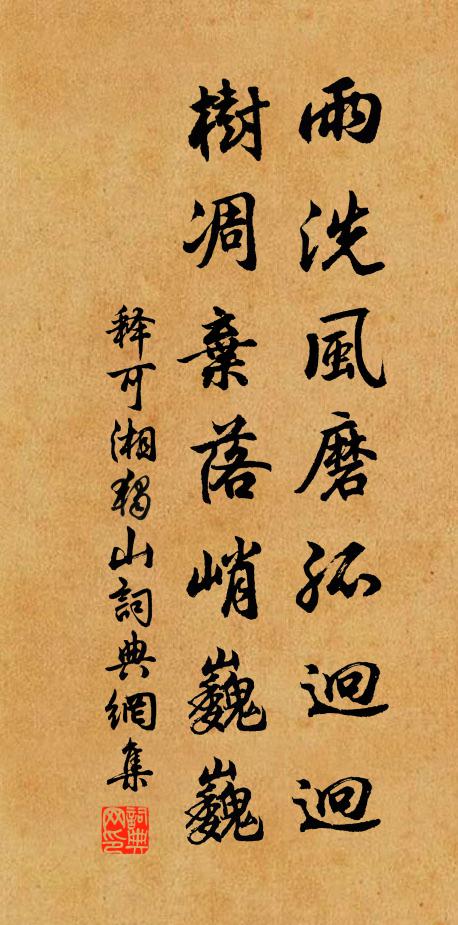 雨洗風磨孤迥迥
樹凋葉落峭巍巍
释可湘獨山詞典網集
詞典網印